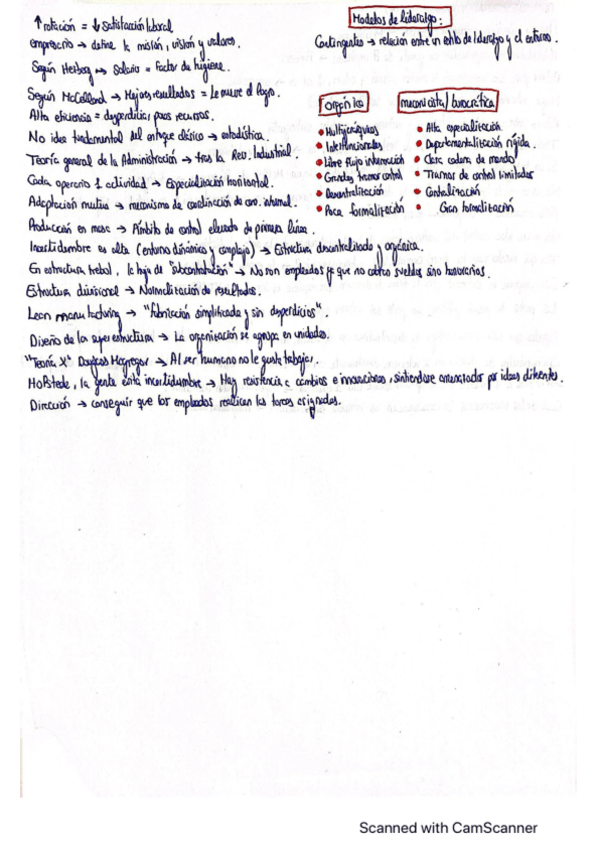 ↑ rotación = ↓ satisfacción laboral
empresario → define la misión, visión y valores.
Según Herberg → Salario = Factor de higiene.
Según McClelland → Mejores resultados = Le mueve el logro.
Alta eficiencia = desperdicia pocos recursos.
No idea fundamental del enfoque clásico → estadística.
Teoría general de la Administración → tras la Rev. Industrial.
Cada operario 1 actividad → Especialización horizontal.
Adaptación mutua → mecanismo de coordinación de com. informal.
Producción en masa → Ámbito de control elevado de primera línea.
Incertidumbre es alta (entorno dinámico y complejo) → Estructura descentralizada y orgánica.
En estructura trebol, la hoja de "subcontratación" → No son empleados ya que no cobran sueldos sino honorarios.
Estructura divisional → Normalización de resultados.
Lean manufacturing → "Fabricación simplificada y sin desperdicios"
Diseño de la superestructura → La organización se agrupa en unidades.
"Teoría X" Douglas Macgregor → Al ser humano no le gusta trabajar.
Hofstede, la gente evita incertidumbre → Hay resistencia a cambios e innovaciones, sintiendose amenazados por ideas diferentes.
Dirección → conseguir que los empleados realicen las tareas asignadas.
Modelos de liderazgo:
Contingentes → relación entre un estilo de liderazgo y el entorno.
orgánica
• Multijerárquicos
• Interfuncionales
• Libre flujo información
• Grandes tramos control
• Descentralización
• Poca formalización
mecanicista / burocrática
• Alta especialización
• Departamentalización rígida
• Clara cadena de mando
• Tramos de control limitados
• Centralización
• Gran formalización
Scanned with CamScanner